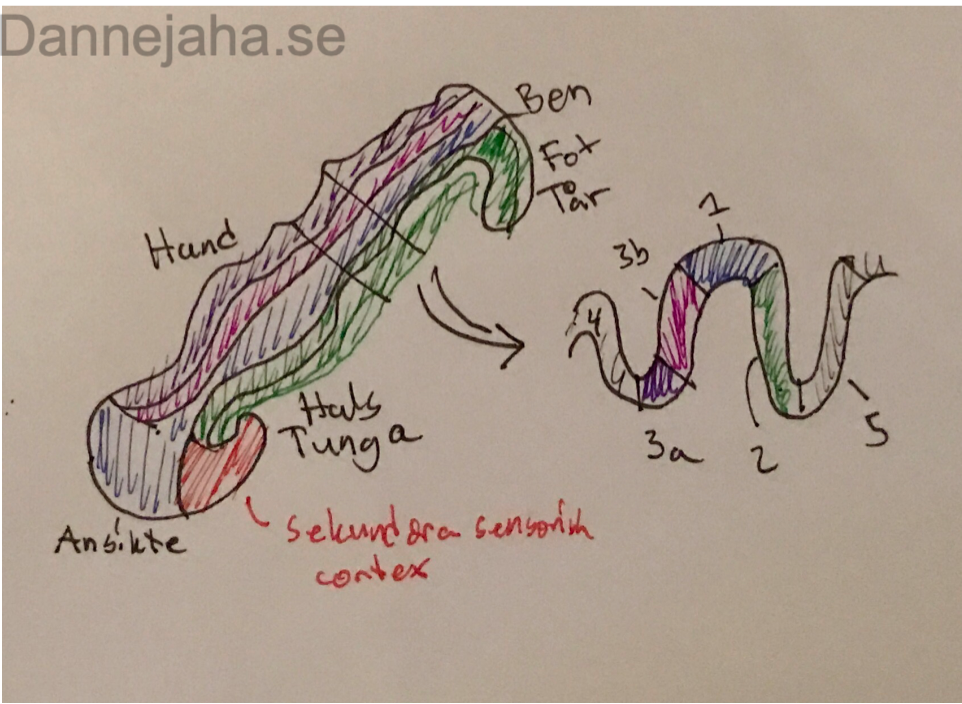 Dannejaha.se
Ben
Fot
Tår
Hand
1
3b
4
Hals
Tunga
3a
2
5
Ansikte
Sekundära sensorisk
cortex